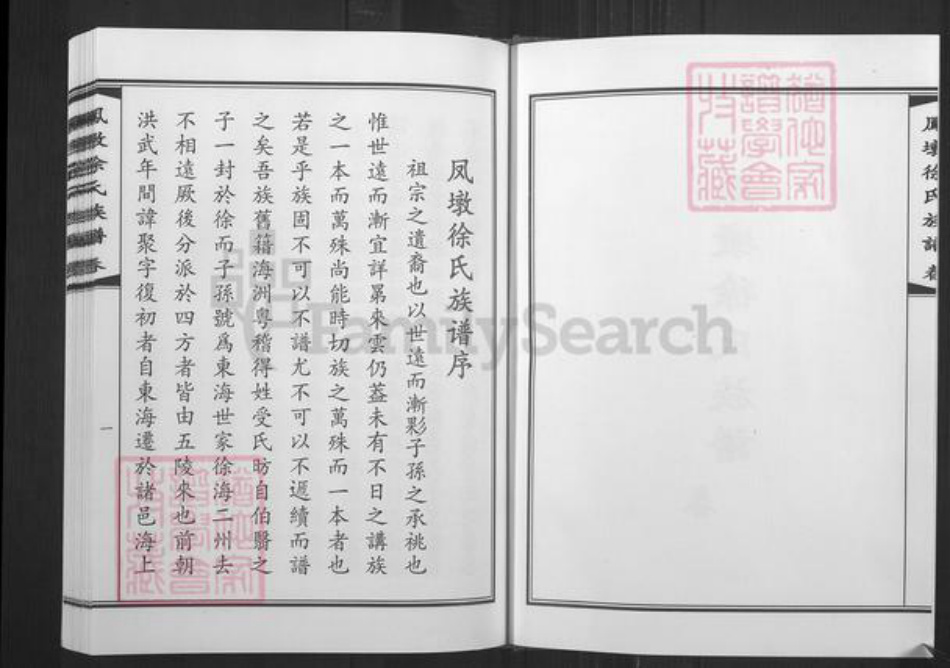 凤墩徐氏族谱序
祖宗之遺裔也以世遠而漸彩子孫之承祧也
惟世遠而漸宜詳晜來雲仍蓋未有不日之講族
之一本而萬殊尚能時切族之萬殊而一本者也
若是乎族固不可以不譜尤不可以不遞續而譜
之矣吾族舊籍海洲粤稽得姓受氏昉自伯翳之
子一封於徐而子孫號爲東海世家徐海二州去
不相遠厥後分派於四方者皆由五陵來也前朝
洪武年間諱聚字復初者自東海遷於諸邑海上
一
凤墩徐氏族譜 卷
凤墩徐氏族譜 卷
FamilySearch